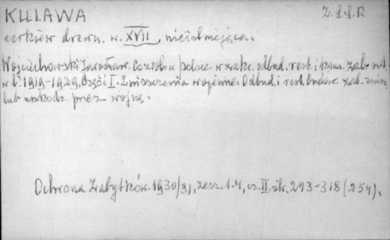 KULAWA
Z.S.S.R
cerkiew drewn. w. XVII, nieistniejąca.
Wojciechowski Jarosław. Co zrobiono w Polsce w zakr. odbud. rest. i kons. zab. szt.
w l. 1919-1929. Część I. Zniszczenia wojenne. Odbud. i rest. budow. zab. zniszcz.
lub uszkodz. przez wojnę.
Ochrona Zabytków. 1930/31, zesz. 1-4, cz. II. str. 243-318 (254).